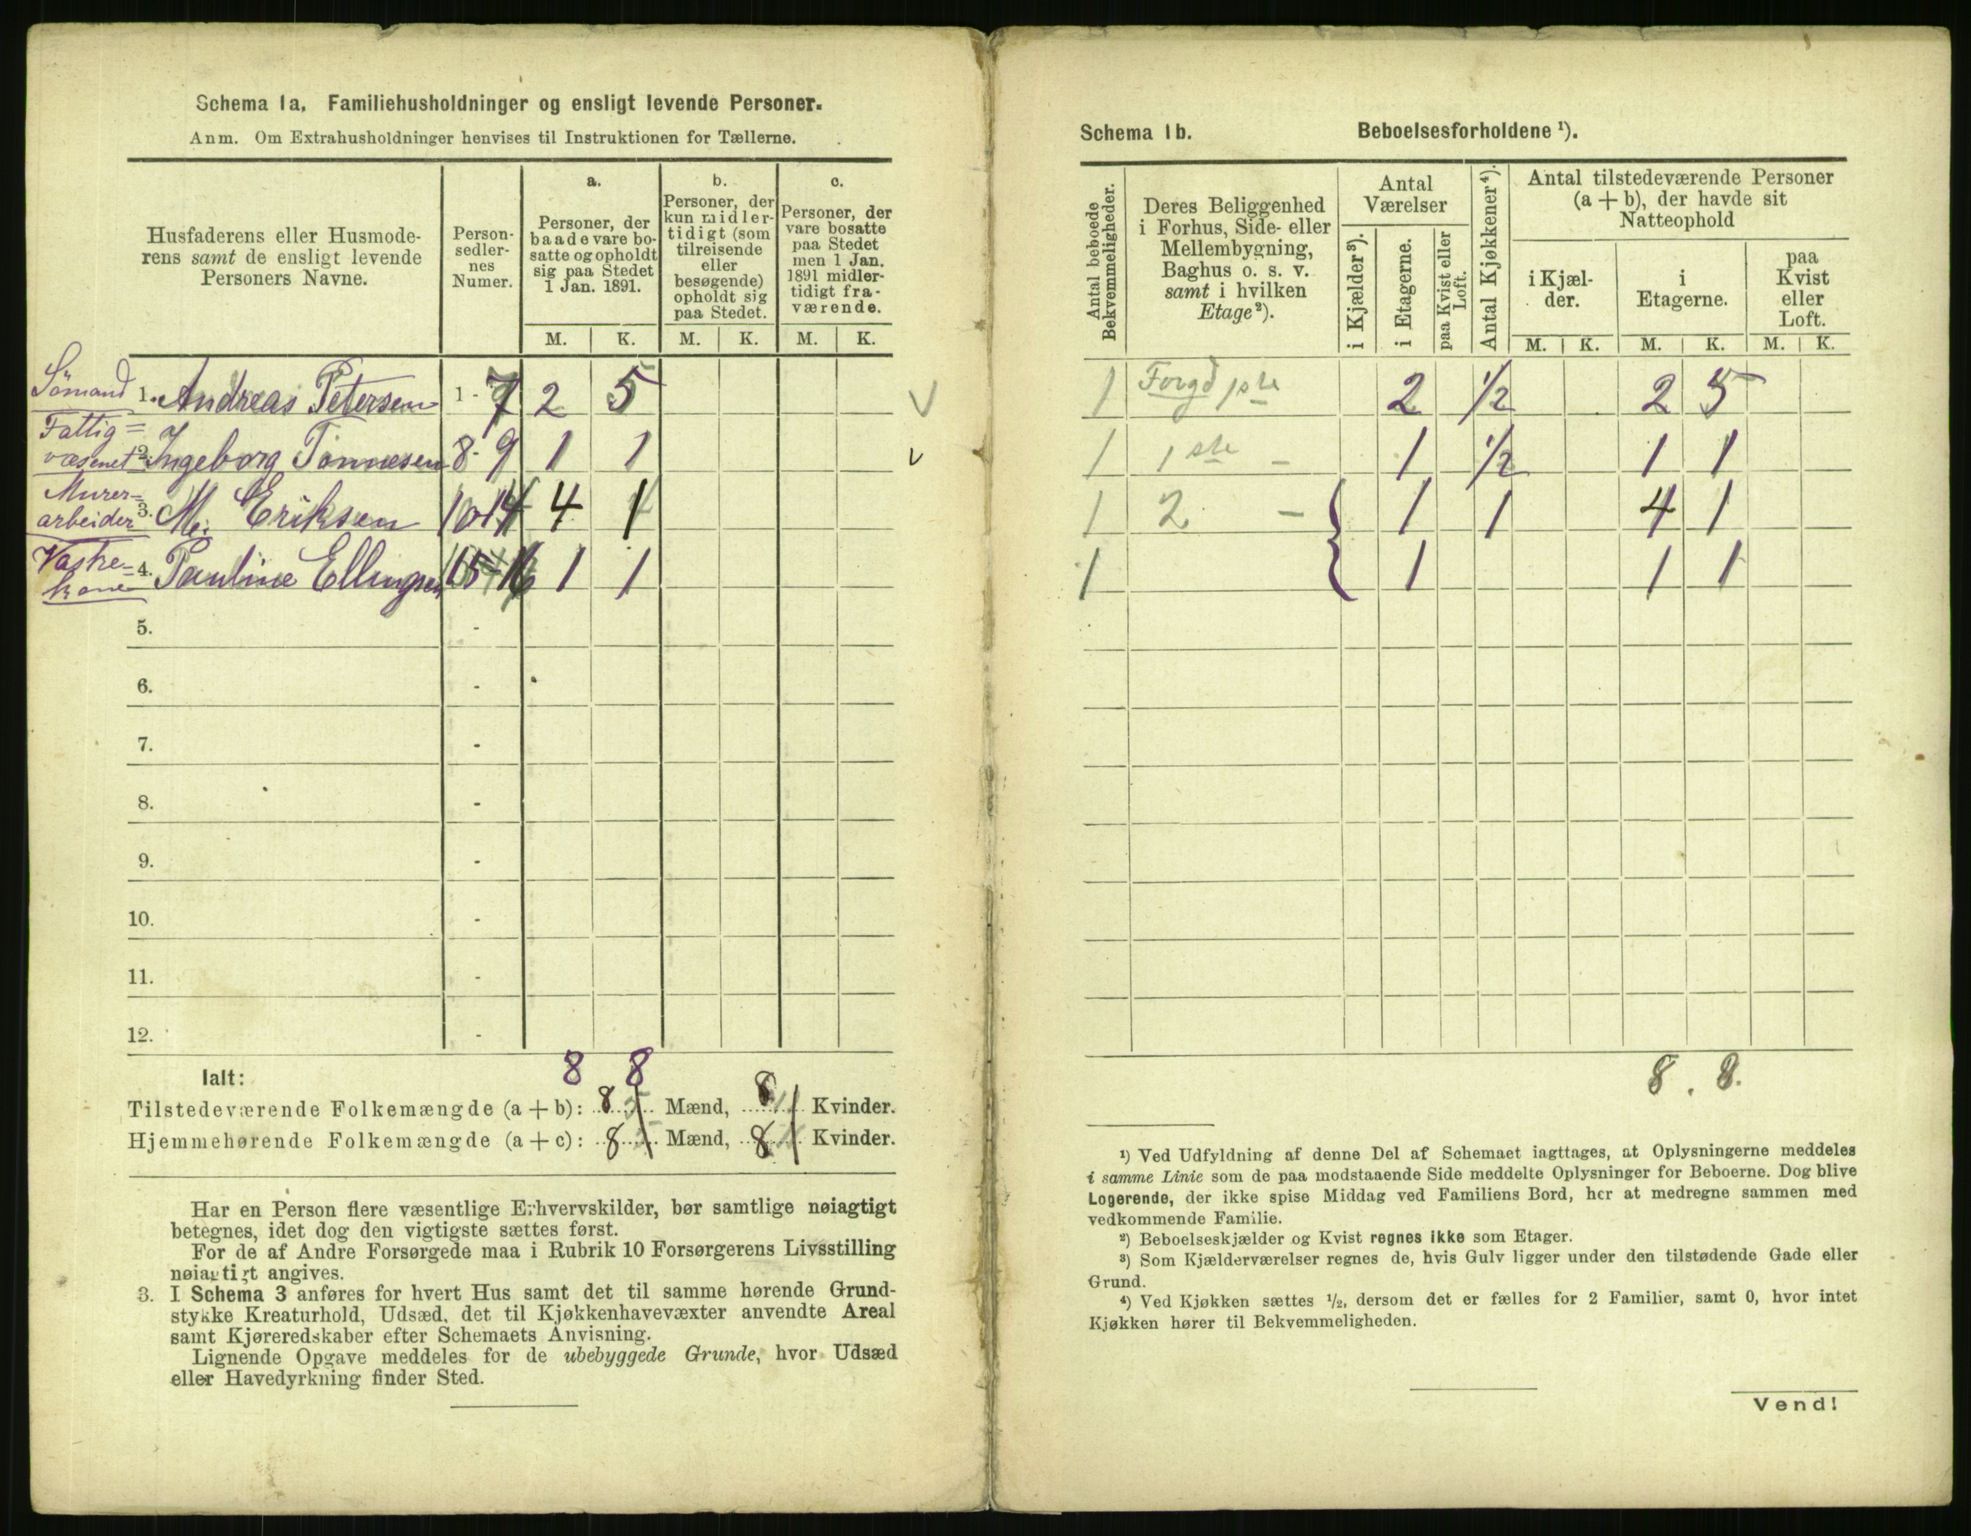 Schema 1a. Familiehusholdninger og ensligt levende Personer.
Anm. Om Extrahusholdninger henvises til Instruktionen for Tællerne.
Husfaderens eller Husmode-
rens samt de ensligt levende
Personers Navne.
Person-
sedler-
nes
Numer.
a.
Personer, der
baade vare bo-
satte og opholdt
sig paa Stedet
1 Jan. 1891.
b.
Personer, der
kun midler-
tidigt (som
tilreisende
eller
besøgende)
opholdt sig
paa Stedet.
c.
Personer, der
vare bosatte
paa Stedet
men 1 Jan.
1891 midler-
tidigt fra-
værende.
M. K. M. K. M. K.
Sömand 1. Andreas Petersen 1 - 7 2 5
Fattig=
væsenet 2. Ingeborg Tönnesen 8 - 9 1 1
Murer=
arbeider 3. M. Eriksen 10-14 4 1
Vaske=
kone 4. Pauline Ellingsen 15-16 1 1
5. -
6. -
7. -
8. -
9. -
10. -
11. -
12. -
8 8
Ialt:
Tilstedeværende Folkemængde (a + b): 8 Mænd, 8 Kvinder.
Hjemmehørende Folkemængde (a + c): 8 Mænd, 8 Kvinder.
Har en Person flere væsentlige Erhvervskilder, bør samtlige nøiagtigt
betegnes, idet dog den vigtigste sættes først.
For de af Andre Forsørgede maa i Rubrik 10 Forsørgerens Livsstilling
nøiagtigt angives.
3. I Schema 3 anføres for hvert Hus samt det til samme hørende Grund-
stykke Kreaturhold, Udsæd, det til Kjøkkenhavevæxter anvendte Areal
samt Kjøreredskaber efter Schemaets Anvisning.
Lignende Opgave meddeles for de ubebyggede Grunde, hvor Udsæd
eller Havedyrkning finder Sted.
Schema 1b. Beboelsesforholdene ¹).
Antal beboede
Bekvemmeligheder.
Deres Beliggenhed
i Forhus, Side- eller
Mellembygning,
Baghus o. s. v.
samt i hvilken
Etage²).
Antal
Værelser
i Kjælder³).
i Etagerne.
paa Kvist eller
Loft.
Antal Kjøkkener⁴).
Antal tilstedeværende Personer
(a + b), der havde sit
Natteophold
i Kjæl-
der.
i
Etagerne.
paa
Kvist
eller
Loft.
M. K. M. K. M. K.
1 Forgd 1ste 2 1/2 2 5
1 1ste - 1 1/2 1 1
1 2 - 1 1 4 1
1 1 1 1
8 . 8.
¹) Ved Udfyldning af denne Del af Schemaet iagttages, at Oplysningerne meddeles
i samme Linie som de paa modstaaende Side meddelte Oplysninger for Beboerne. Dog blive
Logerende, der ikke spise Middag ved Familiens Bord, her at medregne sammen med
vedkommende Familie.
²) Beboelseskjælder og Kvist regnes ikke som Etager.
³) Som Kjælderværelser regnes de, hvis Gulv ligger under den tilstødende Gade eller
Grund.
⁴) Ved Kjøkken sættes ½, dersom det er fælles for 2 Familier, samt 0, hvor intet
Kjøkken hører til Bekvemmeligheden.
Vend!